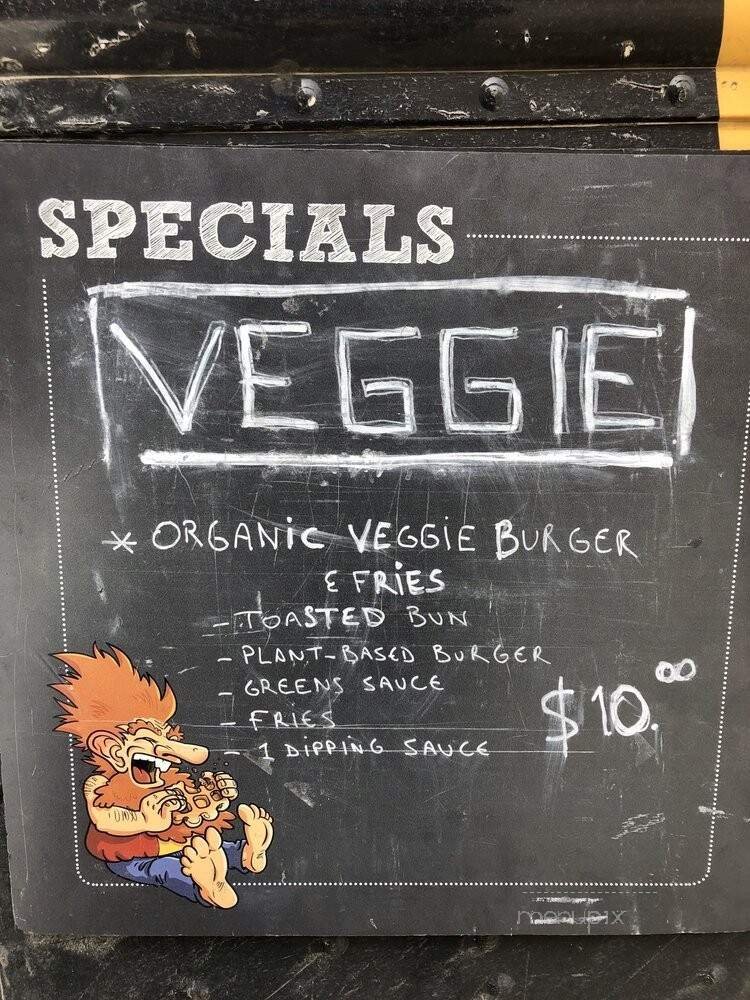 SPECIALS
VEGGIE
* ORGANIC VEGGIE BURGER
& FRIES
- TOASTED BUN
- PLANT-BASED BURGER
- GREENS SAUCE
- FRIES
- 1 DIPPING SAUCE
$10.00
menupix